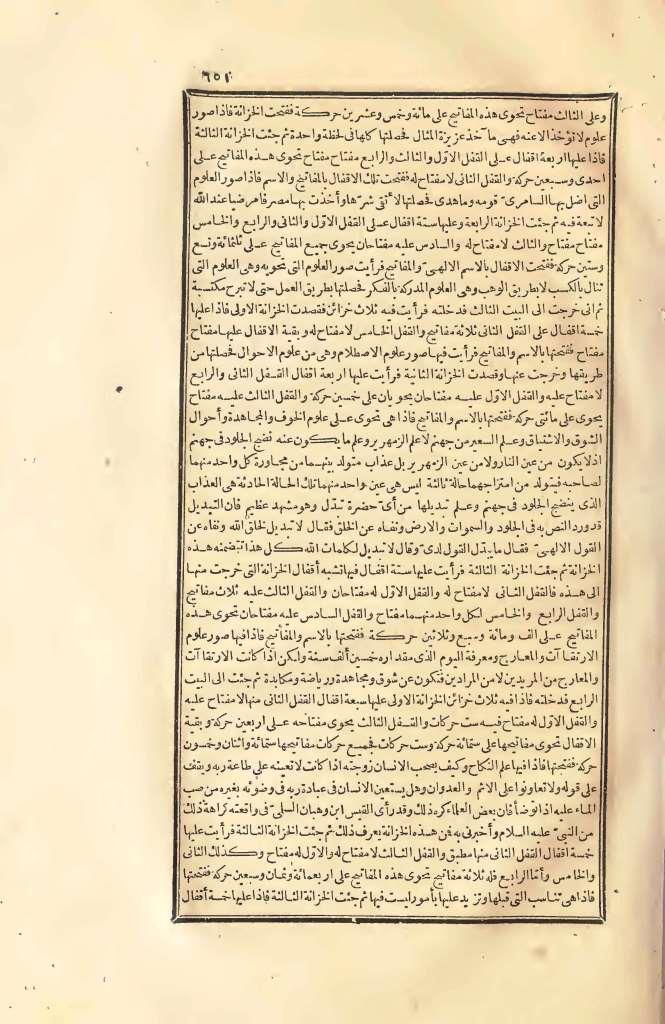 ٦٥١
وعلى الثالث مفتاح تحوى هذه المفاتيح على مائة وخمس وعشرين حركة ففتحت الخزانة فاذا صور
علوم لا تؤخذ الا عنه فهى مآخذ عزيزة المثال فحصلتها كلها فى لحظة واحدة ثم جئت الخزانة الثالثة
فاذا عليها اربعة اقفال على القفل الاول والثالث والرابع مفتاح مفتاح تحوى هذه المفاتيح على
احدى وسبعين حركة والقفل الثانى لا مفتاح له ففتحت تلك الاقفال بالمفاتيح والاسم فاذا صور العلوم
التى اضل بها السامرى قومه وما هدى فحصلتها لأتقى شرها وأخذت بها مصرفا مرضيا عند الله
لا تبعة فيه ثم جئت الخزانة الرابعة وعليها ستة اقفال على القفل الاول والثانى والرابع والخامس
مفتاح مفتاح والثالث لا مفتاح له والسادس عليه مفتاحان يحوى جميع المفاتيح على ثلثمائة وتسع
وستين حركة ففتحت الاقفال بالاسم الالهى والمفاتيح فرأيت صور العلوم التى تحويه وهى العلوم التى
تنال بالكسب لا بطريق الوهب وهى العلوم المدركة بالفكر فحصلتها بطريق العمل حتى لا تبرح مكتسبة
ثم انى خرجت الى البيت الثالث فدخلته فرأيت فيه ثلاث خزائن فقصدت الخزانة الاولى فاذا عليها
خمسة اقفال على القفل الثانى ثلاثة مفاتيح والقفل الخامس لا مفتاح له وبقية الاقفال عليها مفتاح
مفتاح ففتحتها بالاسم والمفاتيح فرأيت فيها صور علوم الاصطلام وهى من علوم الاحوال فحصلتها من
طريقها وخرجت عنها وقصدت الخزانة الثانية فرأيت عليها اربعة اقفال القفل الثانى والرابع
لا مفتاح عليه والقفل الاول عليه مفتاحان يحويان على خمسين حركة والقفل الثالث عليه مفتاح
يحوى على مائتى حركة ففتحتها بالاسم والمفاتيح فاذا هى تحوى على علوم الخوف والمجاهدة وأحوال
الشوق والاشتياق وعلم السعير من جهنم لا علم الزمهرير وعلم ما يكون عنه نضج الجلود فى جهنم
اذ لا يكون من عين النار ولا من عين الزمهرير بل عذاب متولد بينهما من مجاورة كل واحد منهما
لصاحبه فيتولد من امتزاجهما حالة ثالثة ليس هى عين واحد منهما تلك الحالة الحادثة هى العذاب
الذى ينضج الجلود فى جهنم وعلم تبديلها من أى حضرة تبدل وهو مشهد عظيم فان التبديل
قد ورد النص به فى الجلود والسموات والارض ونفاه عن الخلق فقال لا تبديل لخلق الله ونفاه عن
القول الالهى فقال ما يبدل القول لدى وقال لا تبديل لكلمات الله كل هذا تتضمنه هذه
الخزانة ثم جئت الخزانة الثالثة فرأيت عليها ستة اقفال فيها تشبه أقفال الخزانة التى خرجت منها
الى هذه فالقفل الثانى لا مفتاح له والقفل الاول له مفتاحان والقفل الثالث عليه ثلاث مفاتيح
والقفل الرابع والخامس لكل واحد منهما مفتاح والقفل السادس عليه مفتاحان تحوى هذه
المفاتيح على الف ومائة وسبع وثلاثين حركة ففتحتها بالاسم والمفاتيح فاذا فيها صور علوم
الارتقاآت والمعارج ومعرفة اليوم الذى مقداره خمسين ألف سنة ولكن اذا كانت الارتقاآت
والمعارج من المريدين لا من المرادين فتكون عن شوق ومجاهدة ورياضة ومكابدة ثم جئت الى البيت
الرابع فدخلته فاذا فيه ثلاث خزائن الخزانة الاولى عليها سبعة اقفال القفل الثانى منها لا مفتاح عليه
والقفل الاول له مفتاح فيه ست حركات والقفل الثالث يحوى مفتاحه على اربعين حركة وبقية
الاقفال تحوى مفاتيحها على ستمائة حركة وست حركات فجميع حركات مفاتيحها ستمائة واثنان وخمسون
حركة ففتحتها فاذا فيها علم النكاح وكيف يصحب الانسان زوجته اذا كانت لا تعينه على طاعة ربه ويقف
على قوله ولا تعاونوا على الاثم والعدوان وهل يستعين الانسان فى عبادة ربه فى وضوئه بغيره من صب
الماء عليه اذا توضأ فان بعض العلماء كره ذلك وقد رأى القيس ابن وهبان السلمى فى واقعته كراهة ذلك
من النبى عليه السلام وأخبرنى به فمن هذه الخزانة يعرف ذلك ثم جئت الخزانة الثالثة فرأيت عليها
خمسة اقفال القفل الثانى منها مطبق والقفل الثالث لا مفتاح له والاول له مفتاح وكذلك الثانى
والخامس وأما الرابع فله ثلاثة مفاتيح تحوى هذه المفاتيح على اربعمائة وثمان وسبعين حركة ففتحتها
فاذا هى تناسب التى قبلها وتزيد عليها بأمور ليست فيها ثم جئت الخزانة الثالثة فاذا عليها خمسة أقفال